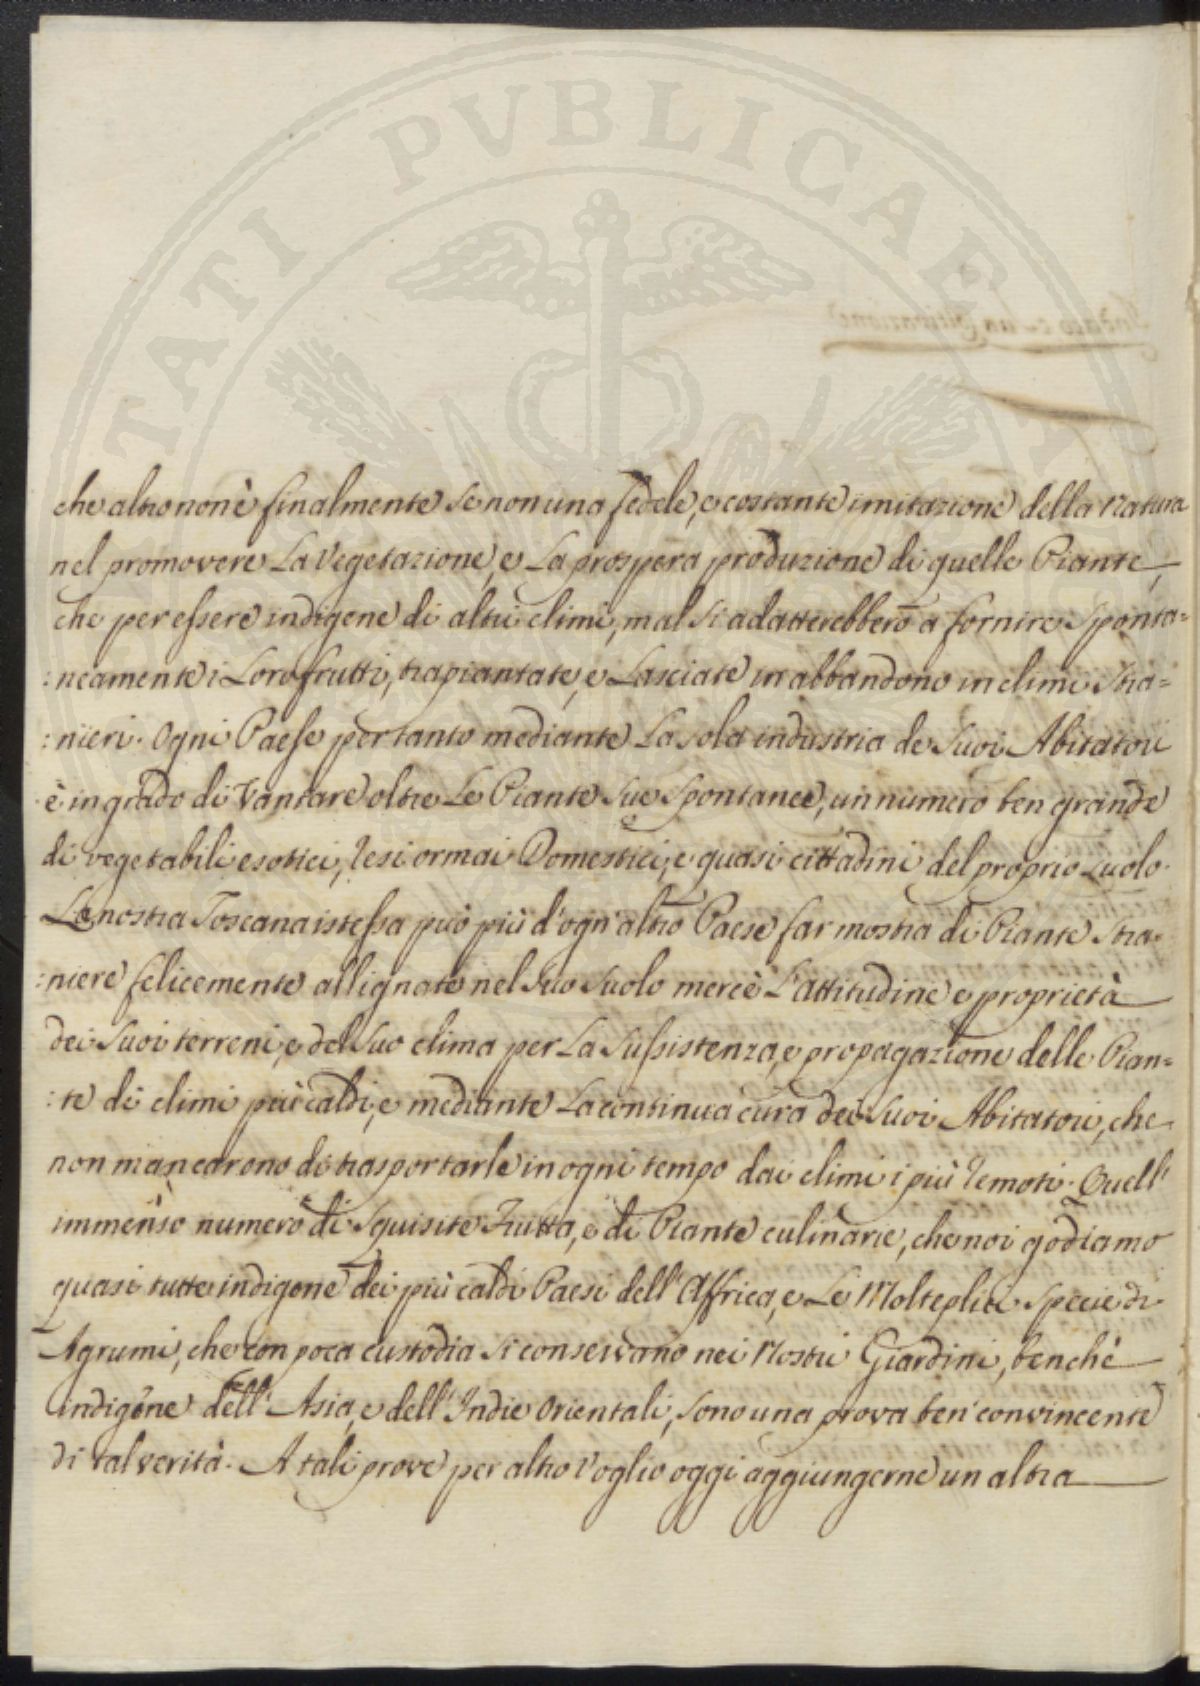 PROSPERITATI PUBLICAE AUGENDAE
che altro non è finalmente se non una fedele, e costante imitazione della Natura
nel promovere La Vegetazione, e La prospera produzione di quelle Piante,
che per essere indigene di altri climi, mal si adatterebbero a fornire sponta=
:neamente i Loro frutti, trapiantate, e Lasciate in abbandono in climi stra=
:nieri. Ogni Paese pertanto mediante La sola industria de Suoi Abitatori
è in grado di Vantare oltre Le Piante sue spontanee, un numero ben grande
di vegetabili esotici, resi ormai Domestici, e quasi cittadini del proprio suolo.
La nostra Toscana istessa può più d'ogn'altro Paese far mostra di Piante stra=
:niere felicemente allignate nel suo suolo mercè L'attitudine e proprietà
dei Suoi terreni, e del suo clima per La sussistenza, e propagazione delle Pian=
:te di climi più caldi, e mediante La continua cura dei Suoi Abitatori, che
non mancarono di trasportarle in ogni tempo dai climi i più remoti. Quell'
immenso numero di squisite Frutta, e di Piante culinarie, che noi godiamo
quasi tutte indigene dei più caldi Paesi dell'Affrica, e Le Molteplici specie di
Agrumi, che con poca custodia si conservano nei Nostri Giardini, benchè
indigene dell'Asia, e dell'Indie Orientali, sono una prova ben convincente
di tal verità. A tali prove per altro voglio oggi aggiungerne un altra